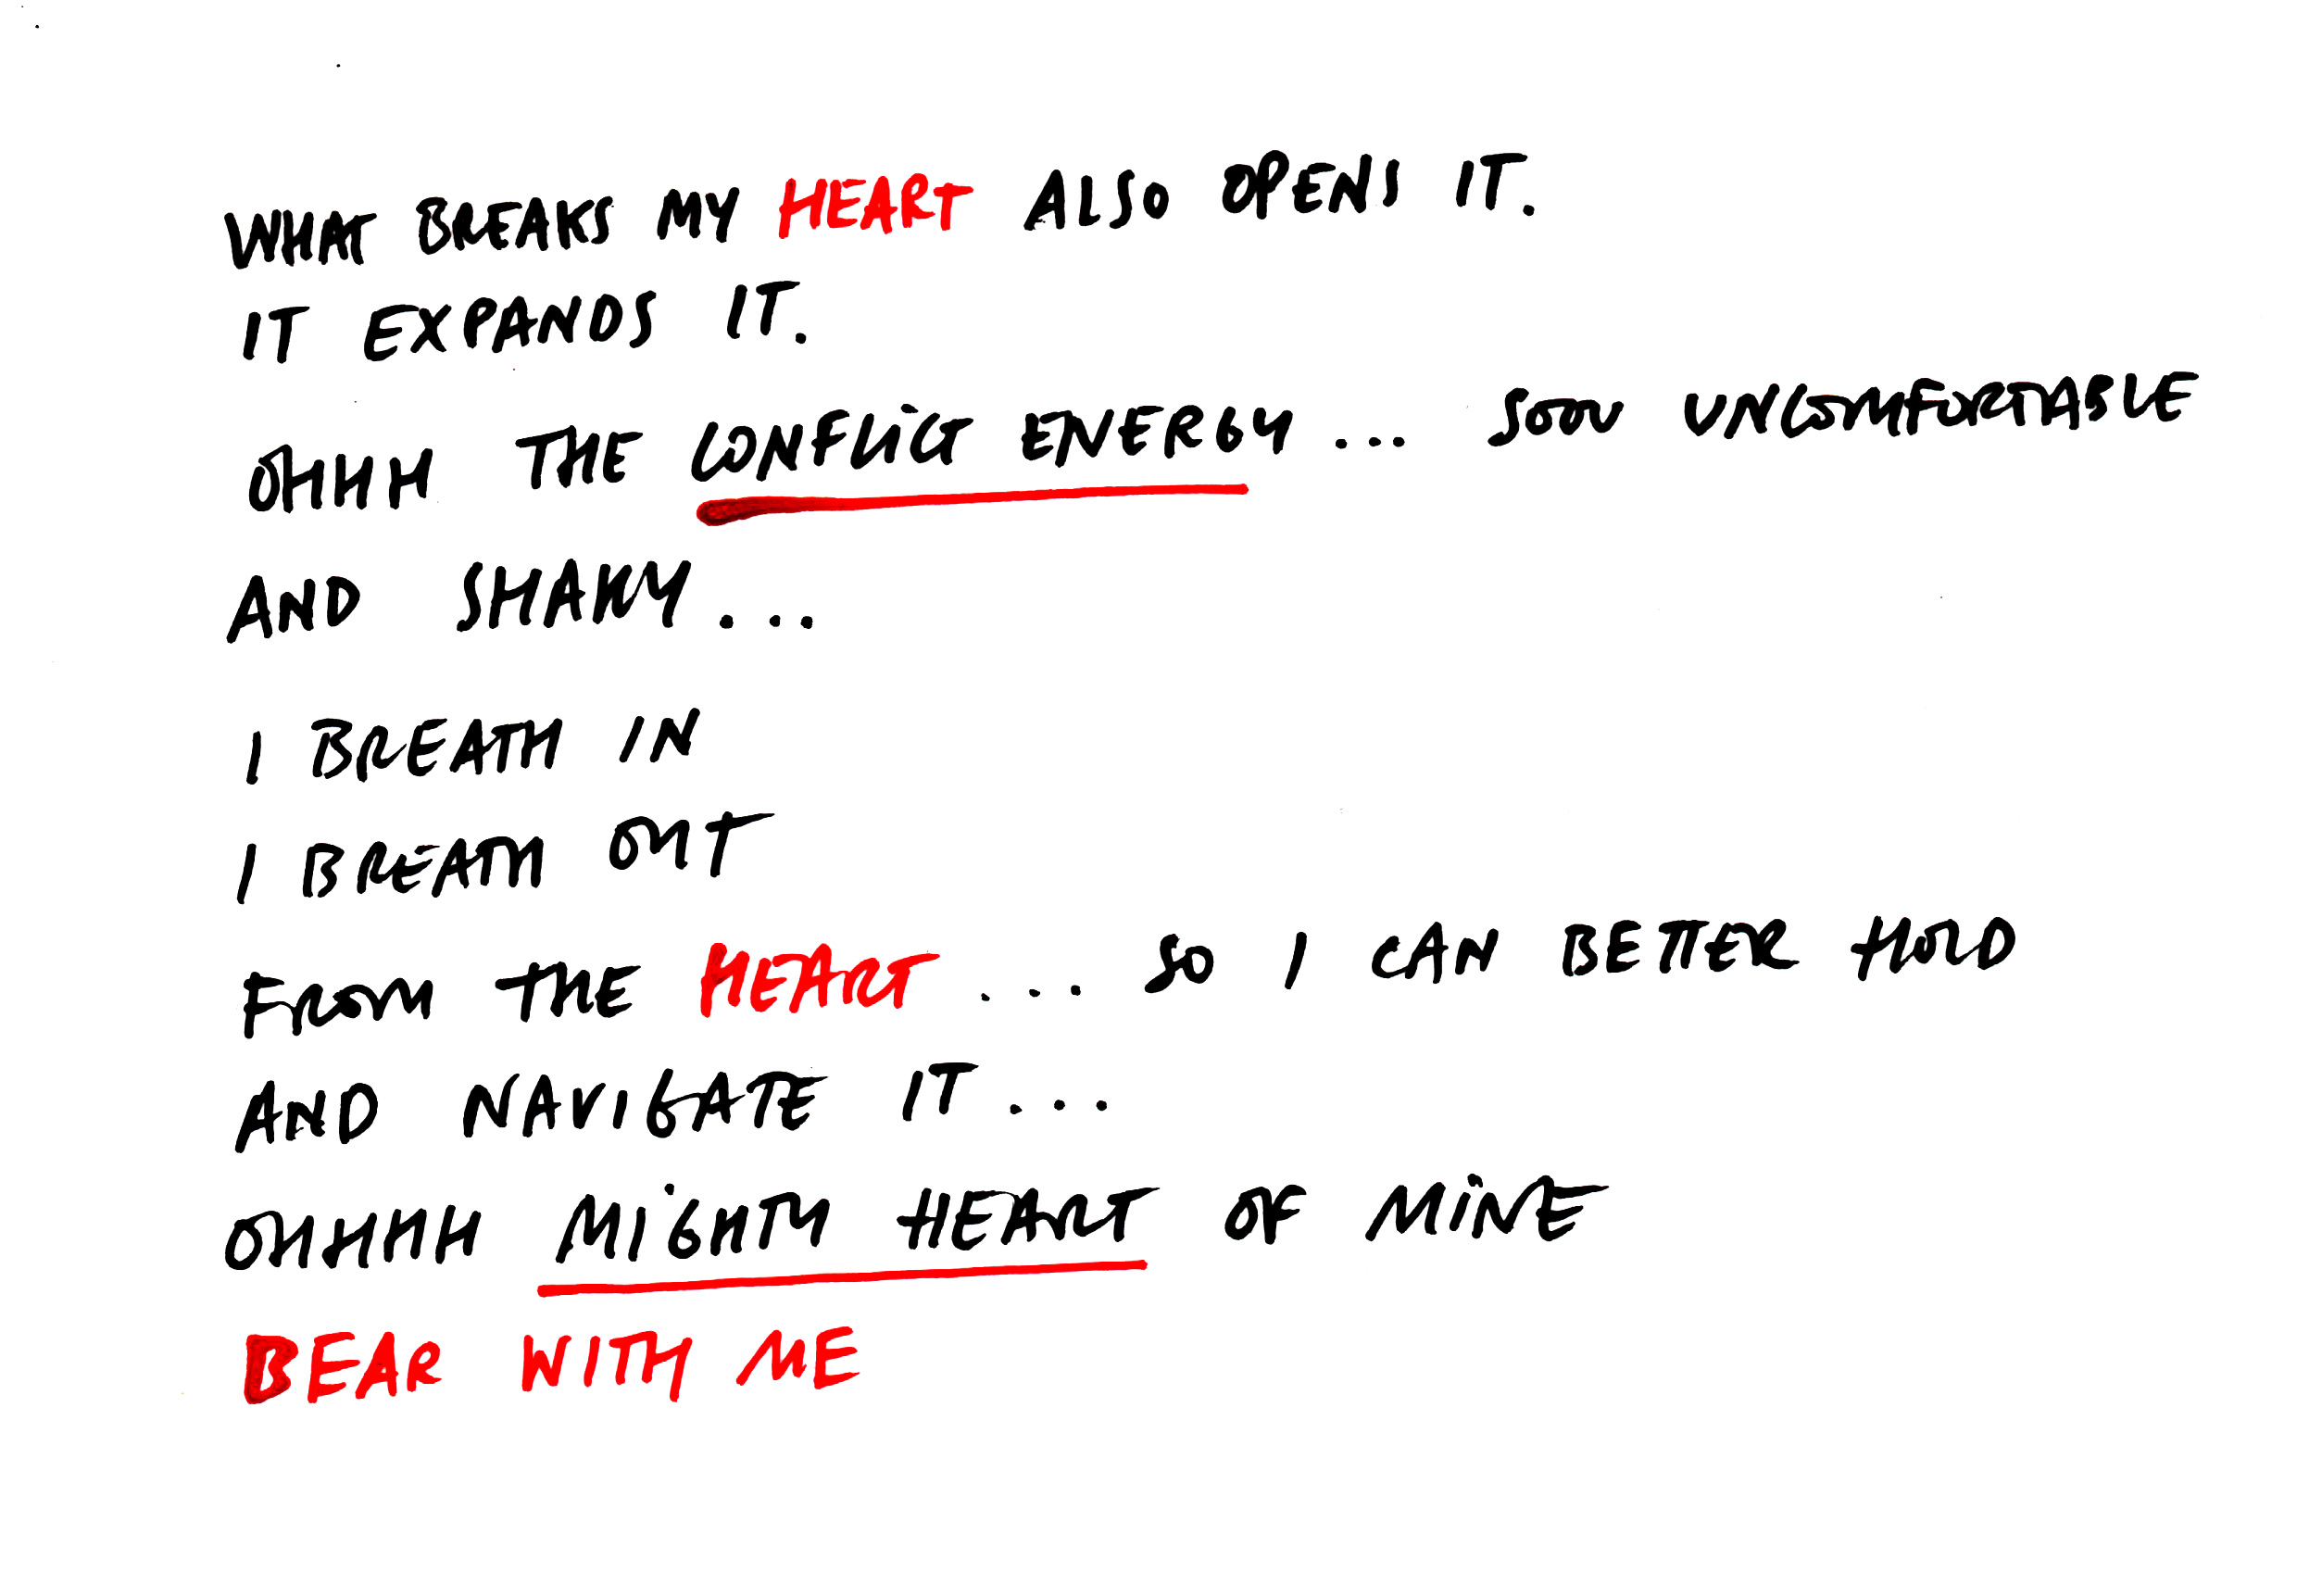 WHAT BREAKS MY HEART ALSO OPENS IT.
IT EXPANDS IT.
OHHH THE CONFLICT ENERGY... SOOO UNCOMFORTABLE
AND SHAKY...
I BREATH IN
I BREATH OUT
FROM THE HEART... SO I CAN BETTER HOLD
AND NAVIGATE IT...
OHHHH MIGHTY HEART OF MINE
BEAR WITH ME